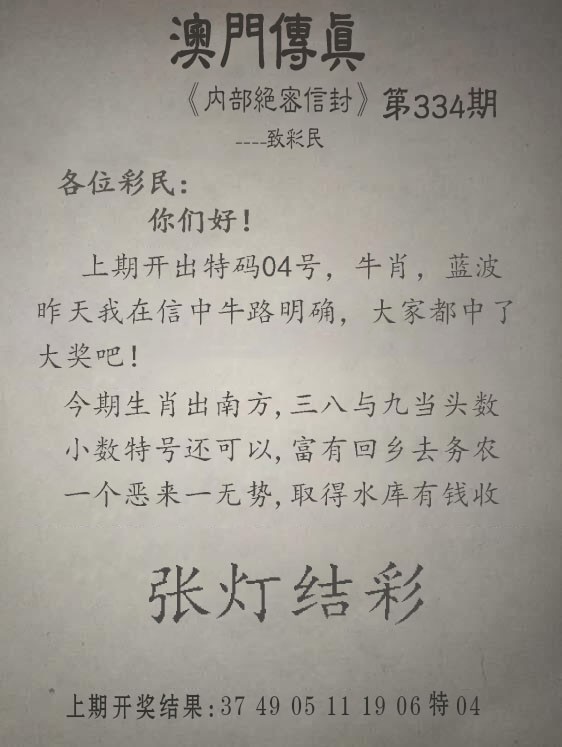 澳門傳真
《内部絕密信封》第334期
----致彩民
各位彩民:
你们好!
上期开出特码04号，牛肖，蓝波
昨天我在信中牛路明确，大家都中了
大奖吧!
今期生肖出南方,三八与九当头数
小数特号还可以,富有回乡去务农
一个恶来一无势,取得水库有钱收
张灯结彩
上期开奖结果:37 49 05 11 19 06 特 04